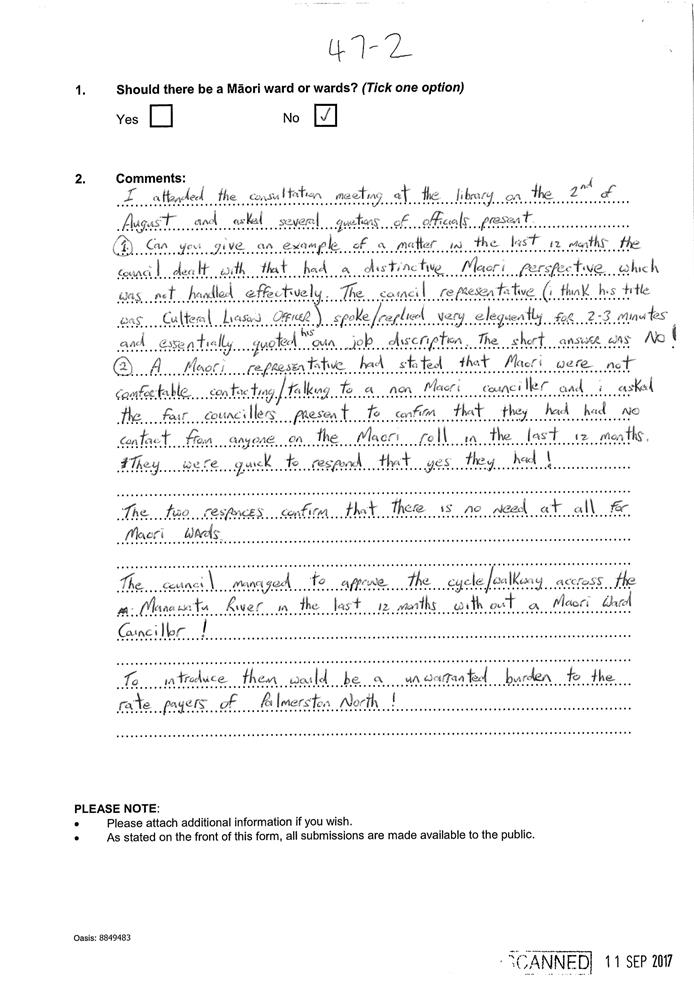 47-2
1. Should there be a Māori ward or wards? (Tick one option)
Yes No ✓
2. Comments:
I attended the consultation meeting at the library on the 2nd of
August and asked several quetions of officials present
① Can you give an example of a matter in the last 12 months the
council dealt with that had a distinctive Maori perspective which
was not handled effectively. The council representative (i think his title
was Culteral Liason Officer) spoke/replied very elequently for 2-3 minutes
and essentially quoted his own job discription. The short answer was No!
② A Maori representative had stated that Maori were not
comfortable contacting/talking to a non Maori counciller and i asked
the four councillers present to confirm that they had had no
contact from anyone on the Maori roll in the last 12 months.
They were quick to respond that yes they had!
The two responces confirm that there is no need at all for
Maori Wards
The council managed to approve the cycle/walkway accross the
Manawatu River in the last 12 months with out a Maori Ward
Councillor!
To introduce them would be a unwarranted burden to the
rate payers of Palmerston North!
PLEASE NOTE:
• Please attach additional information if you wish.
• As stated on the front of this form, all submissions are made available to the public.
Oasis: 8849483
SCANNED 11 SEP 2017